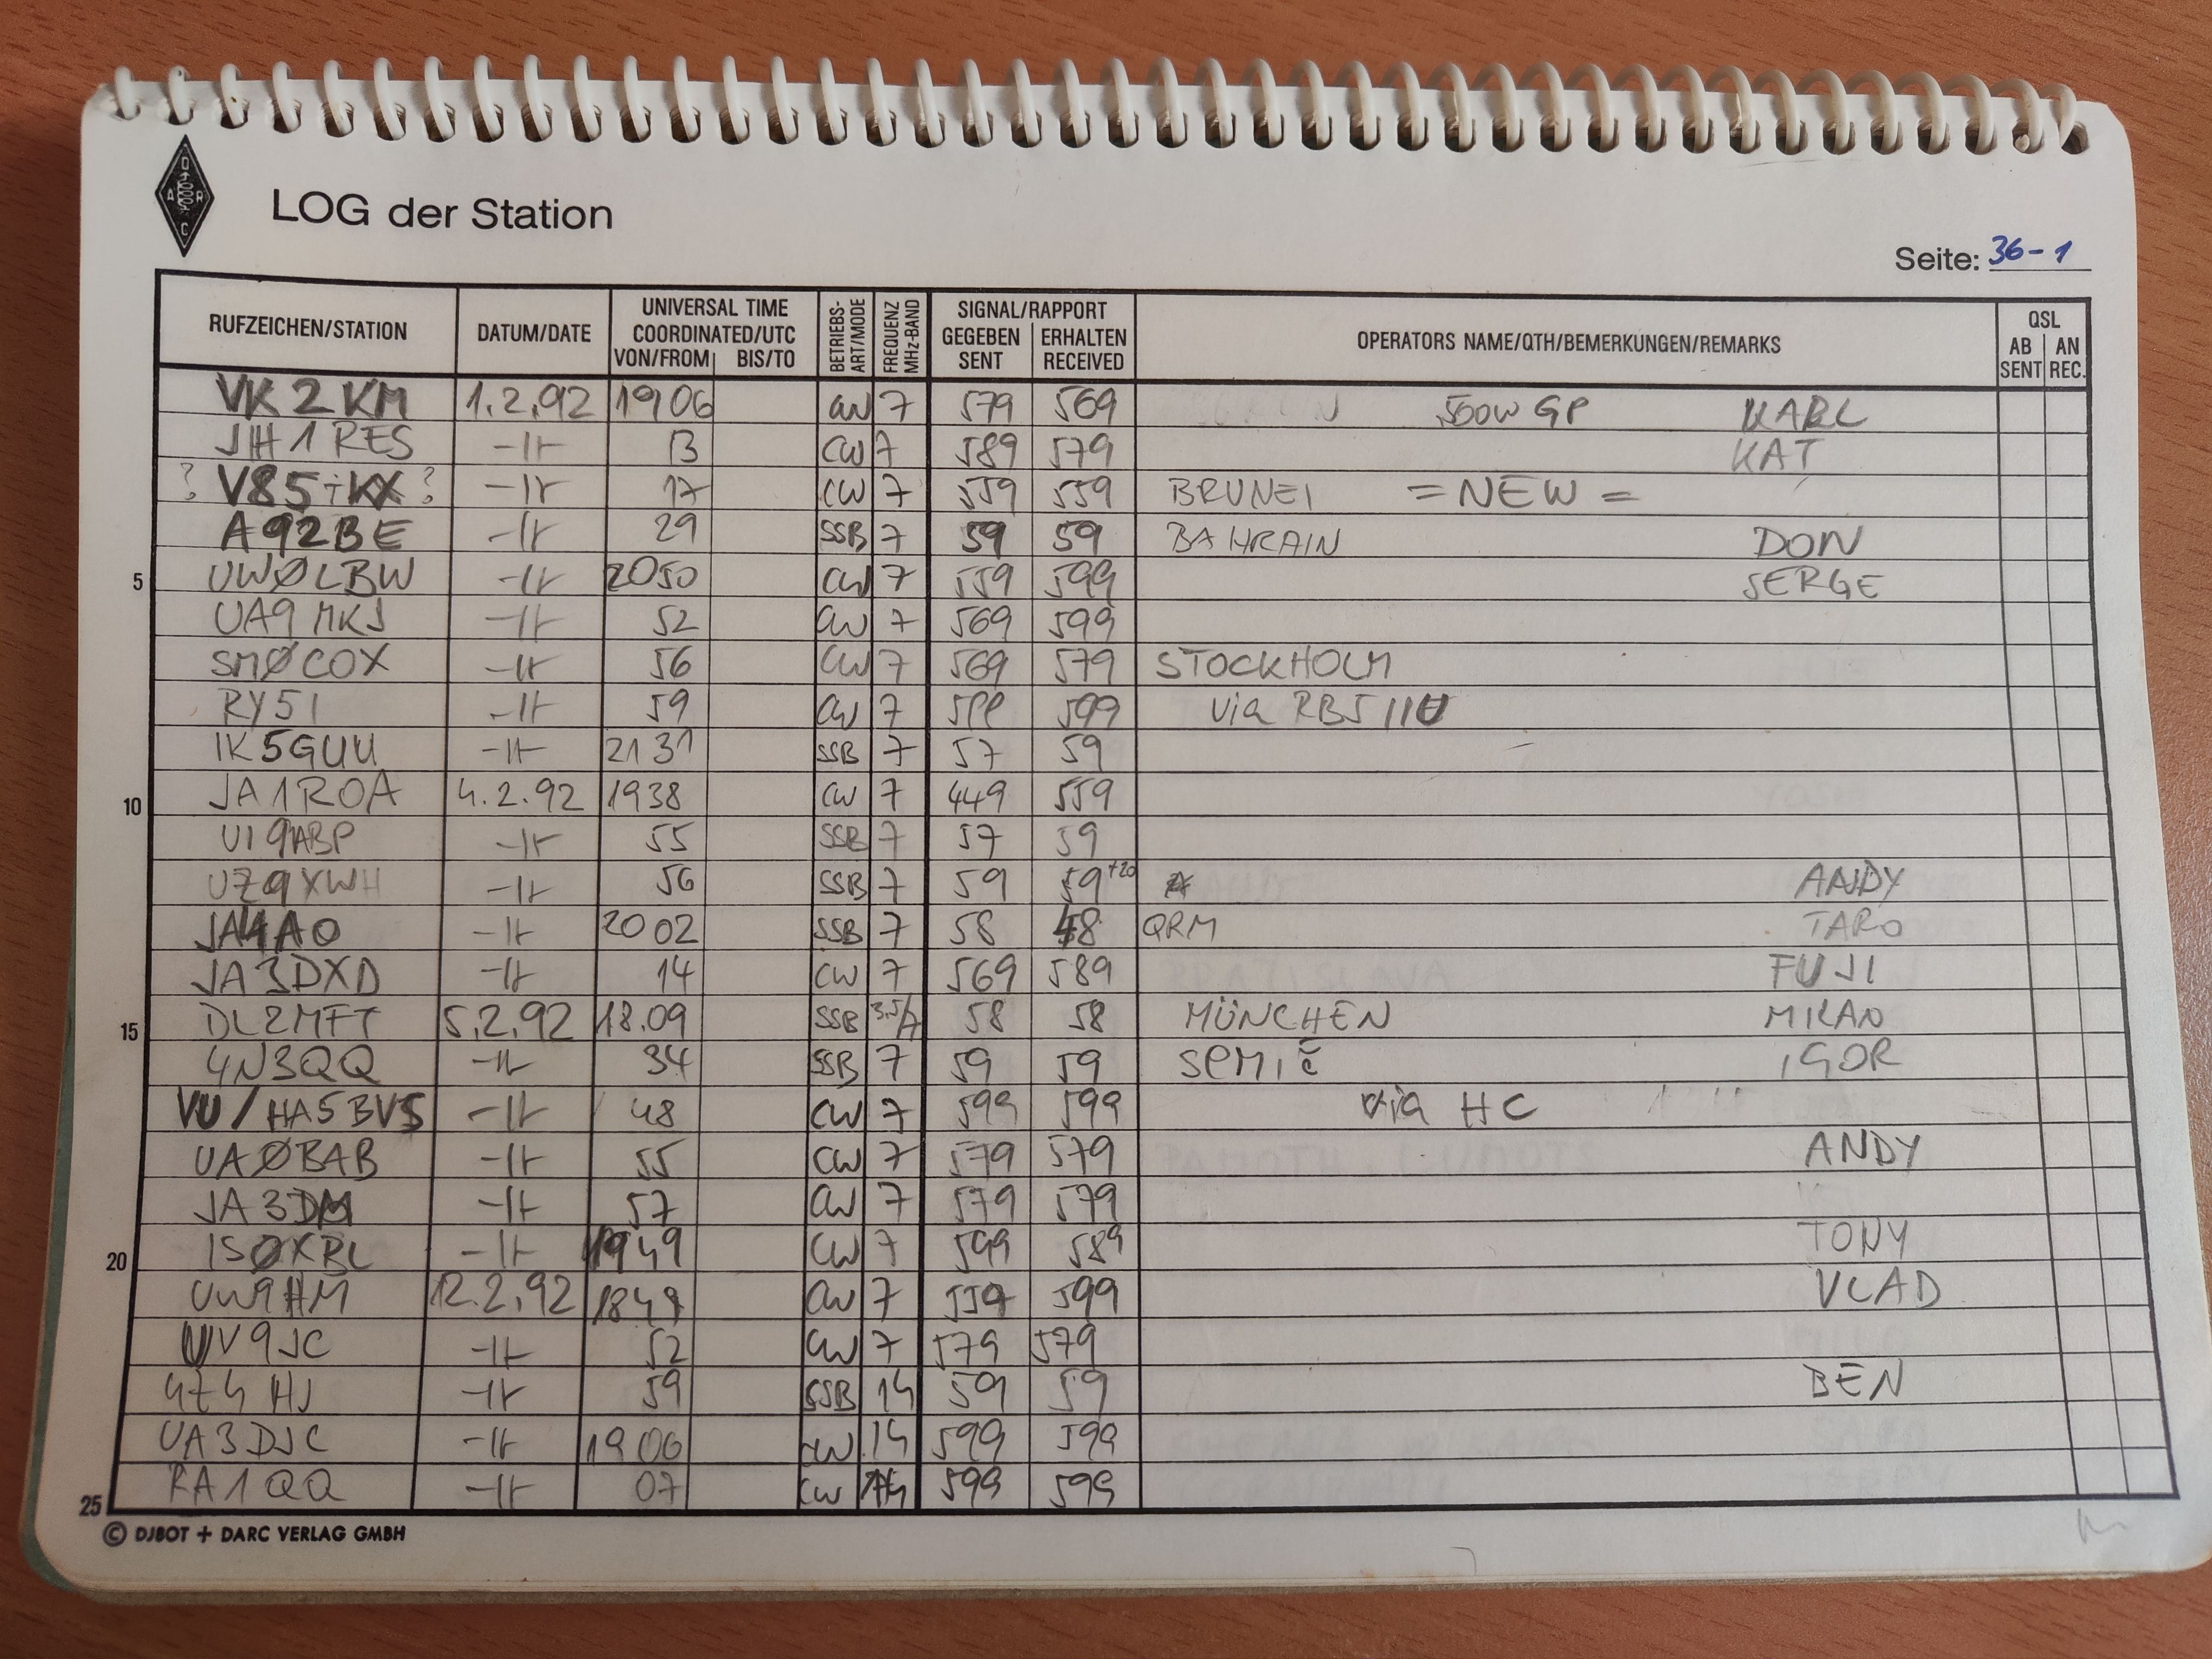 D
A R
C
LOG der Station
Seite: 36-1
RUFZEICHEN/STATION DATUM/DATE UNIVERSAL TIME COORDINATED/UTC VON/FROM BIS/TO BETRIEBS-ART/MODE FREQUENZ MHz-BAND SIGNAL/RAPPORT GEGEBEN SENT ERHALTEN RECEIVED OPERATORS NAME/QTH/BEMERKUNGEN/REMARKS QSL AB SENT AN REC.
VK2KM 1.2.92 1906 CW 7 579 569 500W GP KARL
JH1RES -11- 13 CW 7 589 579 KAT
? V85 KX ? -11- 17 CW 7 559 559 BRUNEI =NEW=
A92BE -11- 29 SSB 7 59 59 BAHRAIN DON
5 UWØLBW -11- 2050 CW 7 559 599 SERGE
UA9MKJ -11- 52 CW 7 569 599
SMØCOX -11- 56 CW 7 569 579 STOCKHOLM
RY5I -11- 59 CW 7 599 599 via RB5IIU
IK5GUU -11- 2131 SSB 7 57 59
10 JA1ROA 4.2.92 1938 CW 7 449 559
UI9ABP -11- 55 SSB 7 57 59
UZ9XWH -11- 56 SSB 7 59 59+20 ANDY
JA4AO -11- 2002 SSB 7 58 48 QRM TARO
JA3DXD -11- 14 CW 7 569 589 FUJI
15 DL2MFT 5.2.92 18.09 SSB 3.5/7 58 58 MÜNCHEN MILAN
4N3QQ -11- 34 SSB 7 59 59 SEMIČ IGOR
VU/HA5BVS -11- 48 CW 7 599 599 via HC
UAØBAB -11- 55 CW 7 579 579 ANDY
JA3DM -11- 57 CW 7 579 579
20 ISØXBL -11- 1949 CW 7 599 589 TONY
UW9HM 12.2.92 1849 CW 7 559 599 VLAD
UV9JC -11- 52 CW 7 579 579
4Z4HJ -11- 59 SSB 14 59 59 BEN
UA3DJC -11- 1906 CW 14 599 599
25 RA1QQ -11- 07 CW 14 599 599
© DJ8OT + DARC VERLAG GMBH